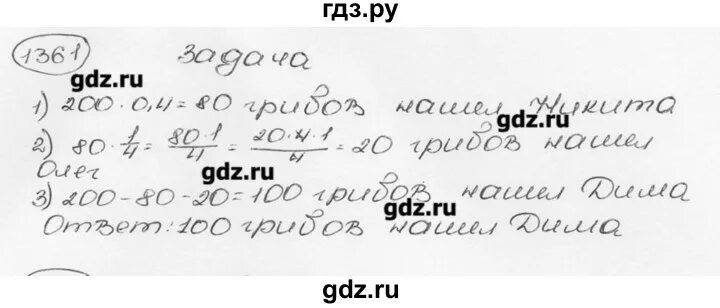 гдз.ру
1361 Задача
gdz.ru
1) 200 · 0,4 = 80 грибов нашел Никита
gdz.ru
2) 80 · 1/4 = 80·1/4 = 20·4·1/4 = 20 грибов нашел
Олег
gdz.ru
3) 200 - 80 - 20 = 100 грибов нашел Дима
gdz.ru
Ответ: 100 грибов нашел Дима
gdz.ru